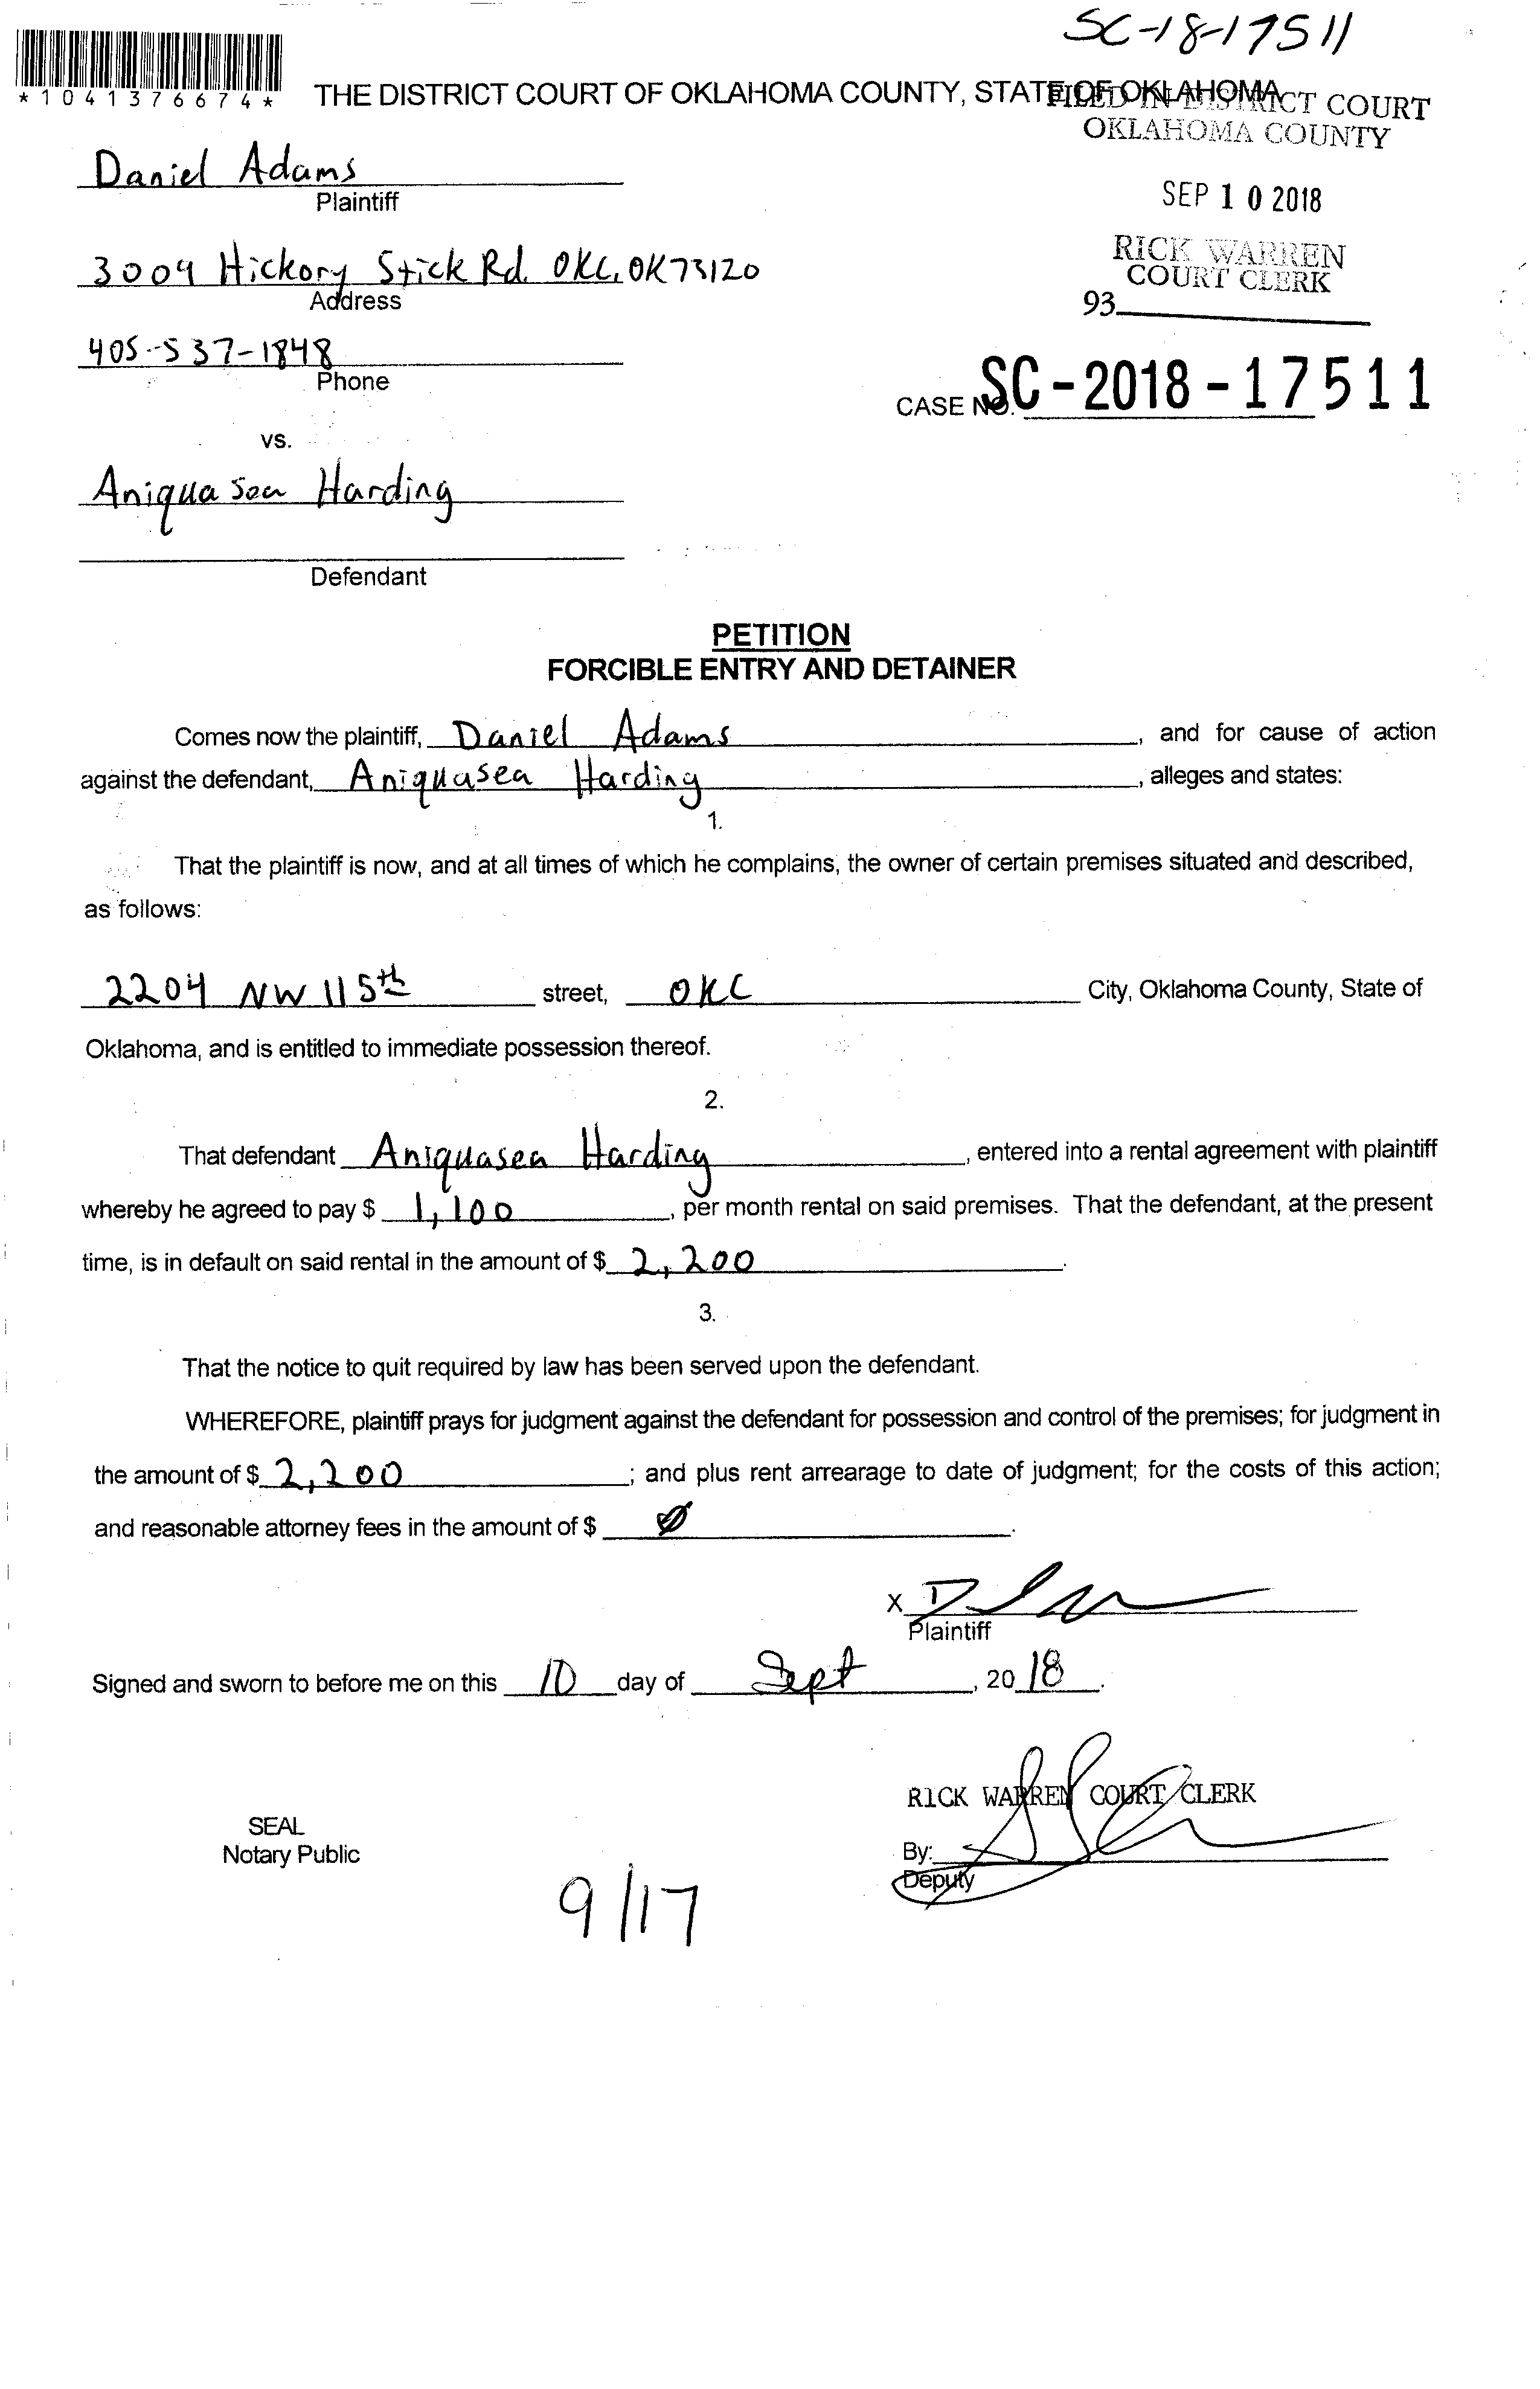 SC-18-17511
*1041376674*
THE DISTRICT COURT OF OKLAHOMA COUNTY, STATE OF OKLAHOMA
FILED IN DISTRICT COURT
OKLAHOMA COUNTY
Daniel Adams
Plaintiff
SEP 10 2018
3009 Hickory Stick Rd. OKC, OK 73120
Address
RICK WARREN
COURT CLERK
93
405-537-1848
Phone
CASE NO. SC-2018-17511
vs.
Aniquasea Harding
Defendant
PETITION
FORCIBLE ENTRY AND DETAINER
Comes now the plaintiff, Daniel Adams, and for cause of action
against the defendant, Aniquasea Harding, alleges and states:
1.
That the plaintiff is now, and at all times of which he complains, the owner of certain premises situated and described,
as follows:
2204 NW 115th street, OKC City, Oklahoma County, State of
Oklahoma, and is entitled to immediate possession thereof.
2.
That defendant Aniquasea Harding, entered into a rental agreement with plaintiff
whereby he agreed to pay $ 1,100, per month rental on said premises. That the defendant, at the present
time, is in default on said rental in the amount of $ 2,200.
3.
That the notice to quit required by law has been served upon the defendant.
WHEREFORE, plaintiff prays for judgment against the defendant for possession and control of the premises; for judgment in
the amount of $ 2,200; and plus rent arrearage to date of judgment; for the costs of this action;
and reasonable attorney fees in the amount of $ Ø.
X
Plaintiff
Signed and sworn to before me on this 10 day of Sept, 2018.
RICK WARREN COURT CLERK
SEAL
Notary Public
By:
Deputy
9/17